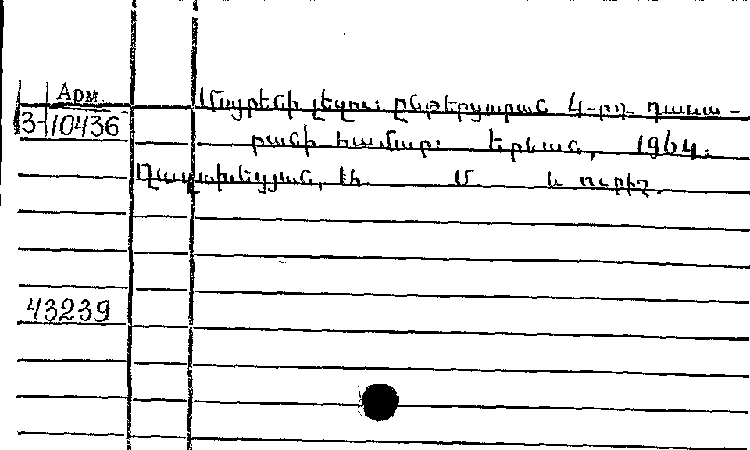 Арм. Մայրենի լեզու: Ընթերցարան 4-րդ դասա-
3-10436 րանի համար: Երևան, 1964.
Մ. և ուրիշ.
43239